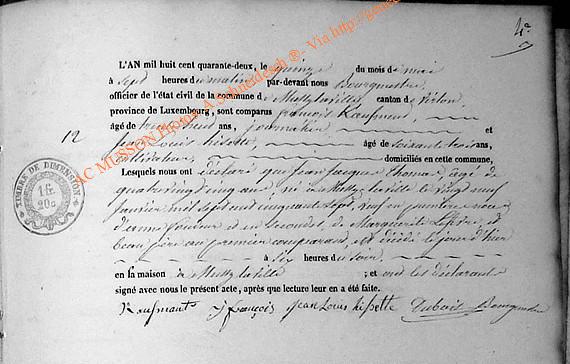 4e
AC MUSSON Photo A Schneidesch ® - Via http://gene
L'AN mil huit cent quarante-deux, le quinze du mois de mai
à sept heures du matin par-devant nous Bourgmestre
officier de l'état civil de la commune de Mussy la ville, canton de Virton,
province de Luxembourg, sont comparus françois Kaufmant
âgé de trente neuf ans, journalier et
12
jean Louis hissette âgé de soixante trois ans,
cultivateur, domiciliés en cette commune,
TIMBRE DE DIMENSION
1 fr.
20c
Lesquels nous ont déclaré que jean jacques thomas, âgé de
quatre vingt cinq ans, né à Mussy la ville le vingt neuf
janvier mil sept cent cinquante sept, veuf en première noce
d'anne et en secondes, de Marguerite Lefèvre, et
beau père au premier comparant, est décédé le jour d'hier
à six heures du soir,
en la maison de Mussy la ville ; et ont les déclarants
signé avec nous le présent acte, après que lecture leur en a été faite.
Kaufmant françois jean Louis hissette Bourgmestre